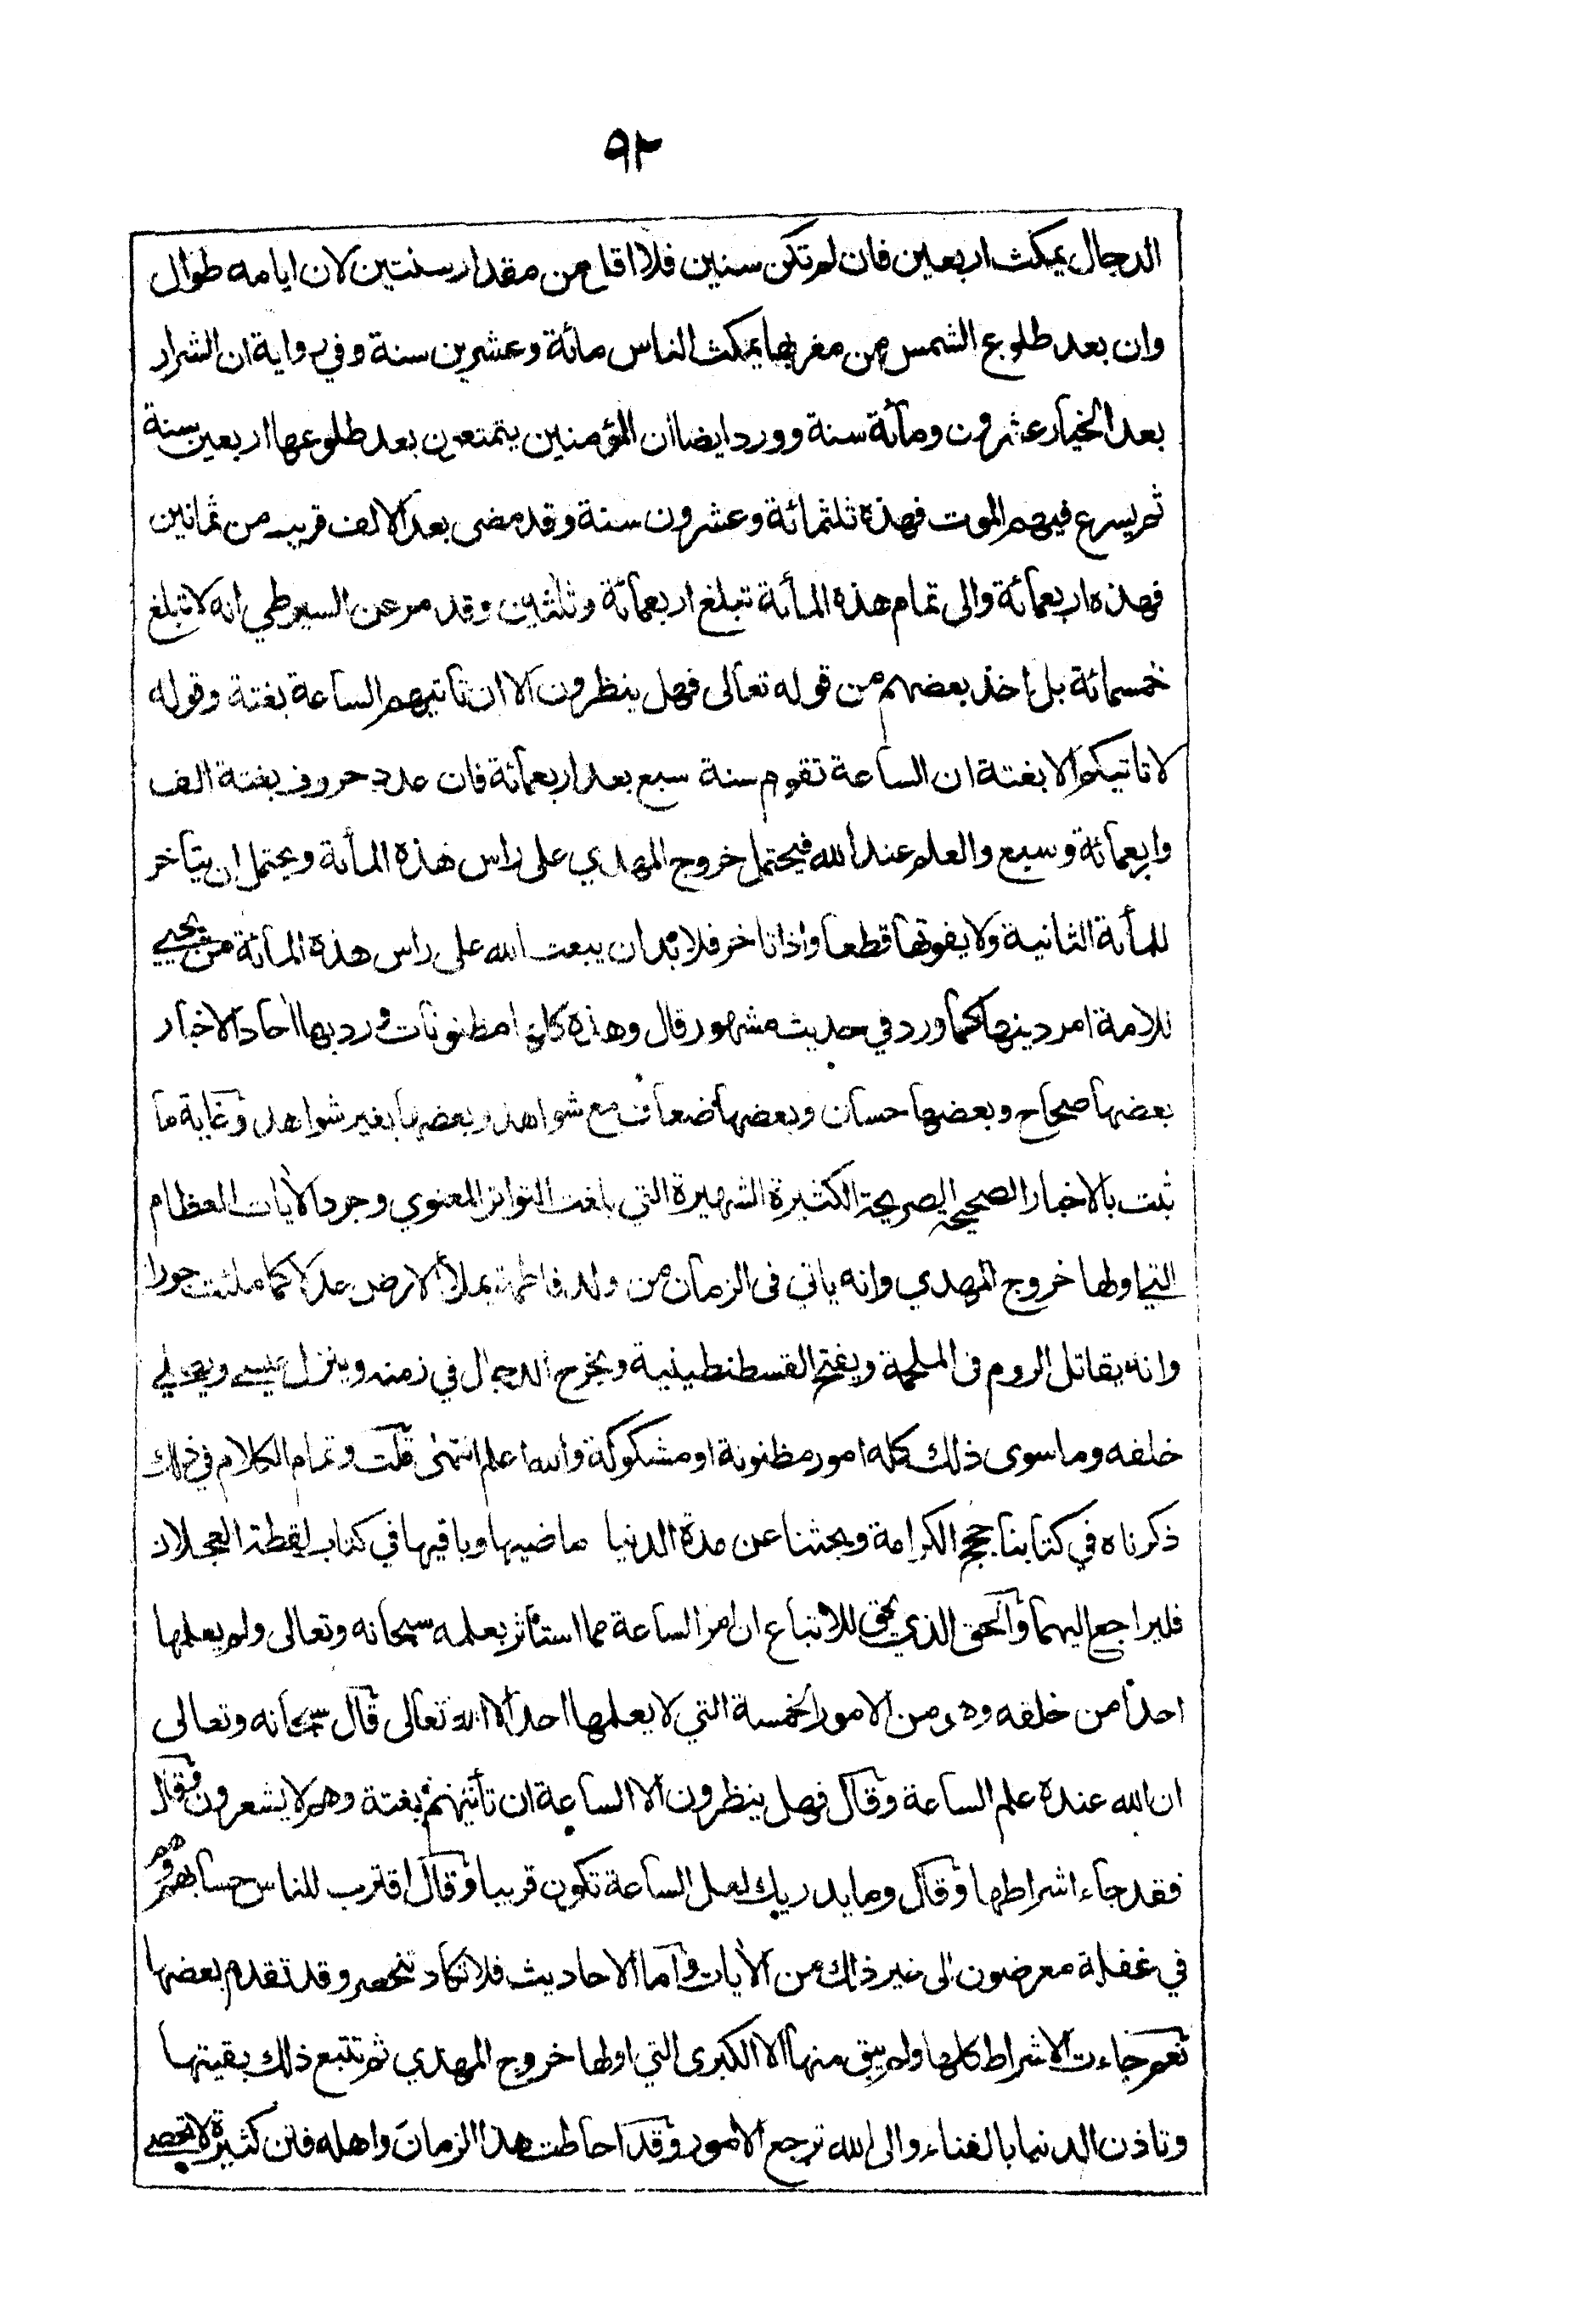 ٩٢
الدجال يمكث اربعين فان لم تكن سنين فلا اقل من مقدار سنتين لان ايامه طوال
وان بعد طلوع الشمس من مغربها يمكث الناس مائة وعشرين سنة وفي رواية ان الشرار
بعد الخيار عشرون ومائة سنة وورد ايضا ان المؤمنين يتمتعون بعد طلوعها اربعين سنة
ثم يسرع فيهم الموت فهذه ثلثمائة وعشرون سنة وقد مضى بعد الالف قريب من ثمانين
فهذه اربعمائة والى تمام هذه المأئة تبلغ اربعمائة وثلثين وقد مر عن السيوطي انه لا تبلغ
خمسمائة بل اخذ بعضهم من قوله تعالى فهل ينظرون الا ان تأتيهم الساعة بغتة وقوله
لا تاتيكم الا بغتة ان الساعة تقوم سنة سبع بعد اربعمائة فان عدد حروف بغتة الف
واربعمائة وسبع والعلم عند الله فيحتمل خروج المهدي على راس هذه المأئة ويحتمل ان يتاخر
للمأئة الثانية ولا يفوتها قطعا واذا تاخر فلا بد ان يبعث الله على راس هذه المائة من يحيي
للامة امر دينها كما ورد في حديث مشهور قال وهذه كلها مظنونات ورد بها احاد الاخبار
بعضها صحاح وبعضها حسان وبعضها ضعاف مع شواهد وبعضها بغير شواهد وغاية ما
ثبت بالاخبار الصحيحة الصريحة الكثيرة الشهيرة التي بلغت التواتر المعنوي وجود الآيات العظام
التي اولها خروج المهدي وانه ياتي فى الزمان من ولد فاطمة يملأ الارض عدلا كما ملئت جورا
وانه يقاتل الروم فى الملحمة ويفتح القسطنطينية ويخرج الدجال في زمنه وينزل عيسى ويصلي
خلفه وما سوى ذلك كله امور مظنونة او مشكوكة والله اعلم انتهى قلت وتمام الكلام في ذلك
ذكرناه في كتابنا حجج الكرامة وبحثنا عن مدة الدنيا ماضيها وباقيها في كتاب لقطة العجلان
فليراجع اليهما والحق الذي يحق للاتباع ان امر الساعة مما استأثر بعلمه سبحانه وتعالى ولم يعلمها
احدا من خلقه وهو من الامور الخمسة التي لا يعلمها احد الا الله تعالى قال سبحانه وتعالى
ان الله عنده علم الساعة وقال فهل ينظرون الا الساعة ان تأتيهم بغتة وهم لا يشعرون وقال
فقد جاء اشراطها وقال وما يدريك لعل الساعة تكون قريبا وقال اقترب للناس حسابهم وهم
في غفلة معرضون الى غير ذلك من الآيات واما الاحاديث فلا تكاد تنحصر وقد تقدم بعضها
نعم جاءت الاشراط كلها ولم يبق منها الا الكبرى التي اولها خروج المهدي ثم تتبع ذلك بقيتها
وتاذن الدنيا بالفناء والى الله ترجع الامور وقد احاطت هذا الزمان واهله فتن كثيرة لا تحصى